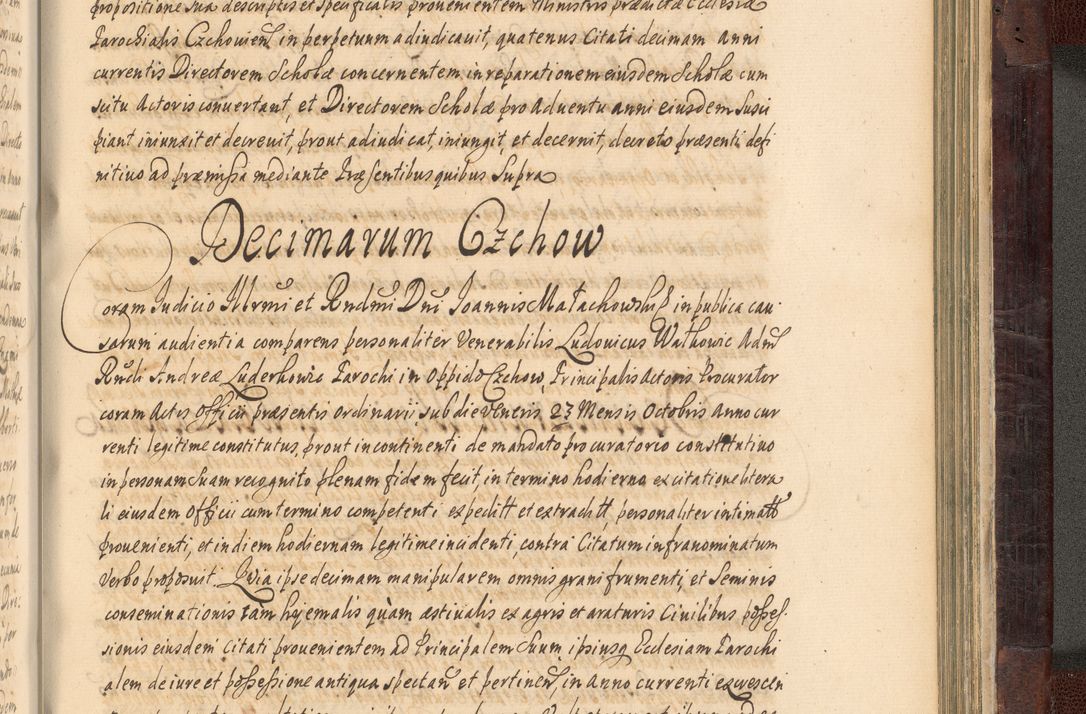 propositione sua descriptis et specificatis provenientem Ministris prædictæ Ecclesiæ
Parochialis Czchovien in perpetuum adiudicavit, quatenus Citati decimam anni
currentis Directorem Scholæ concernentem in reparationem eiusdem Scholæ cum
scitu Actoris convertant, et Directorem Scholæ pro Adventu anni eiusdem susci
piant iniunxit et decrevit, prout adiudicat, iniungit, et decernit, decreto præsenti defi
nitivo ad præmissa mediante Præsentibus quibus Supra
Decimarum Czchow
Coram Iudicio Illrmi et Rndmi Dni Ioannis Małachowski in publica cau
sarum audientia comparens personaliter Venerabilis Ludovicus Walkowic Admd
Rndi Andreæ Luderkowic Parochi in Oppido Czchow, Principalis Actoris Procurator
coram Actis Officii præsentis ordinarii, sub die Veneris 23 Mensis Octobris Anno cur
renti legitime constitutus, prout in continenti de mandato procuratorio constitutivo
in personam Suam recognito plenam fidem fecit, in termino hodierno ex citatione litera
li eiusdem Officii cum termino competenti expeditt et extraditt, personaliter intimatt
provenienti, et in diem hodiernam legitime incidenti, contra Citatum infranominatum
Verbo proposuit. Quia ipse decimam manipularem omnis grani frumenti, et Seminis
conseminationis tàm hyemalis quàm æstivalis ex agris et araturis Civilibus posses
sionis eiusdem Citati provenientem ad Principalem Suum ipsiusq Ecclesiam Parochi
alem de iure et possessione antiqua spectan et pertinen, in Anno currenti excrescen